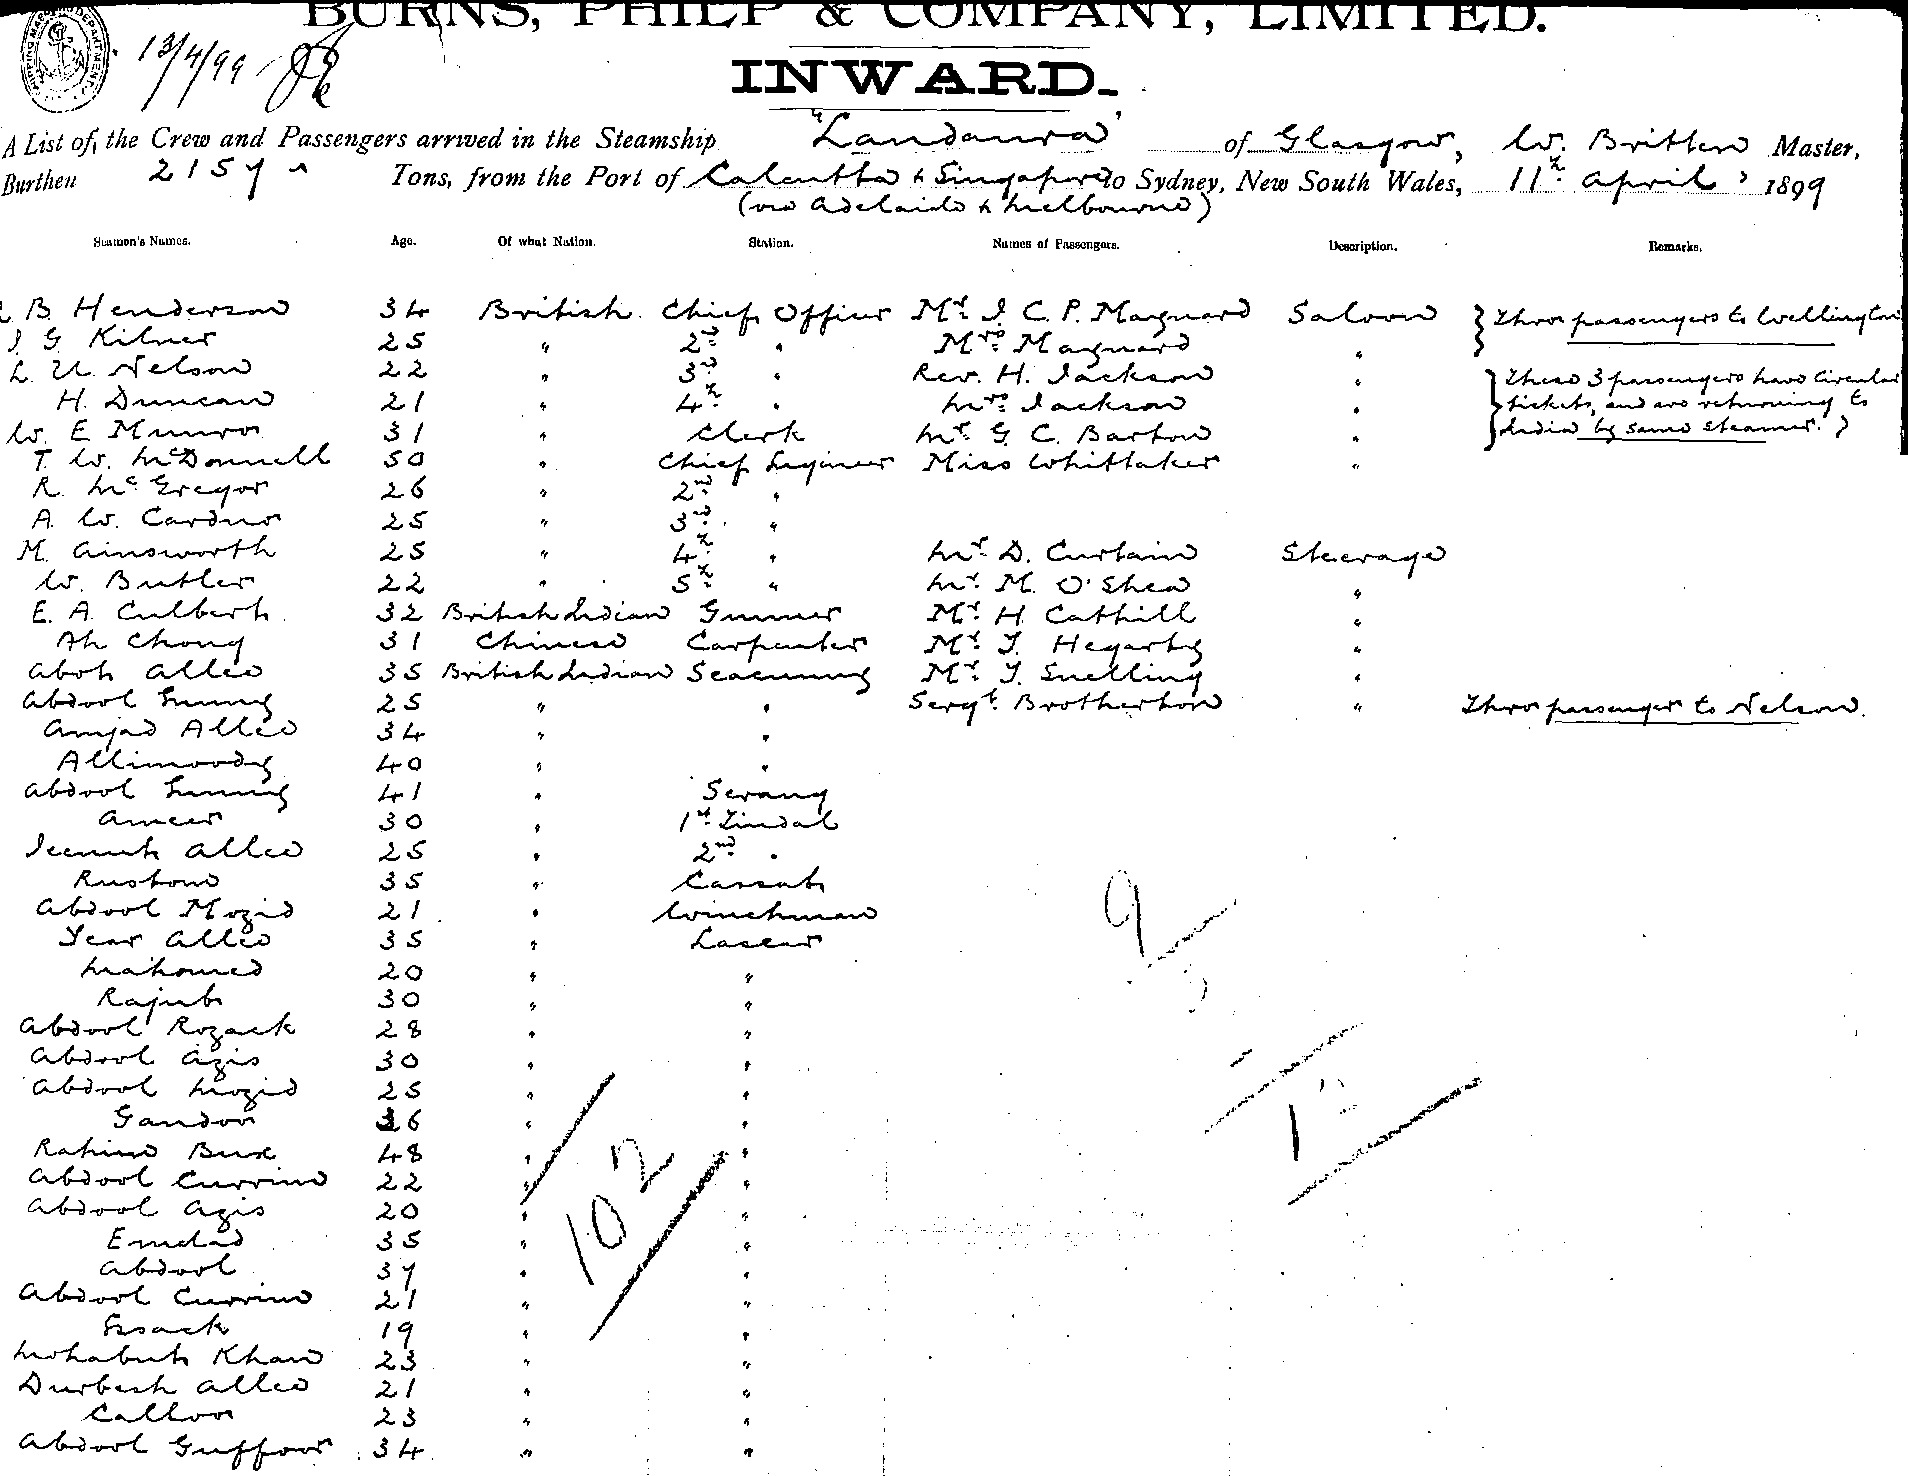 BURNS, PHILP & COMPANY, LIMITED.
13/4/99
INWARD.
A List of, the Crew and Passengers arrived in the Steamship "Landaura" of Glasgow, W. Britten Master,
Burthen 2157 Tons, from the Port of Calcutta & Singapore to Sydney, New South Wales, 11th April 1899
(via Adelaide & Melbourne)
Seamen's Names. Age. Of what Nation. Station. Names of Passengers. Description. Remarks.
B. Henderson 34 British. Chief Officer Mr. J. C. P. Maynard Saloon } Thro passengers to Wellington
J. G. Kilner 25 " 2nd " Mrs. Maynard "
L. U. Nelson 22 " 3rd " Rev. H. Jackson " } These 3 passengers have Circular
H. Duncan 21 " 4th " Mrs. Jackson " tickets, and are returning to
W. E. Munro 31 " Clerk Mr. G. C. Barton " India by same steamer. }
T. W. McDonnell 50 " Chief Engineer Miss Whittaker "
R. McGregor 26 " 2nd "
A. W. Cardno 25 " 3rd "
M. Ainsworth 25 " 4th " Mr. D. Curtain Steerage
W. Butler 22 " 5th " Mr. M. O'Shea "
E. A. Culbert 32 British Indian Gunner Mr. H. Cathill "
Ah Chong 31 Chinese Carpenter Mr. J. Hegarty "
Aboh Allee 35 British Indian Seacunny Mr. J. Snelling "
Abdool Gunny 25 " " Sergt. Brotherton " Thro passenger to Nelson.
Amjad Allee 34 " "
Allimoody 40 " "
Abdool Gunny 41 " Serang
Ameer 30 " 1st Tindal
Allee 25 " 2nd "
Rustom 35 " Cassab
Abdool Mozid 21 " Winchman
Year Allee 35 " Lascar
Mahomed 20 " "
Rajub 30 " "
Abdool Rozack 28 " "
Abdool Azis 30 " "
Abdool Mozid 25 " "
Gandoo 36 " "
Rahim Bux 48 " "
Abdool Currim 22 " "
Abdool Azis 20 " "
Emdad 35 " "
Abdool 37 " "
Abdool Currim 21 " "
Essack 19 " "
Mohabut Khan 23 " "
Durbesh Allee 21 " "
Calloo 23 " "
Abdool Guffoor 34 " "
9
102